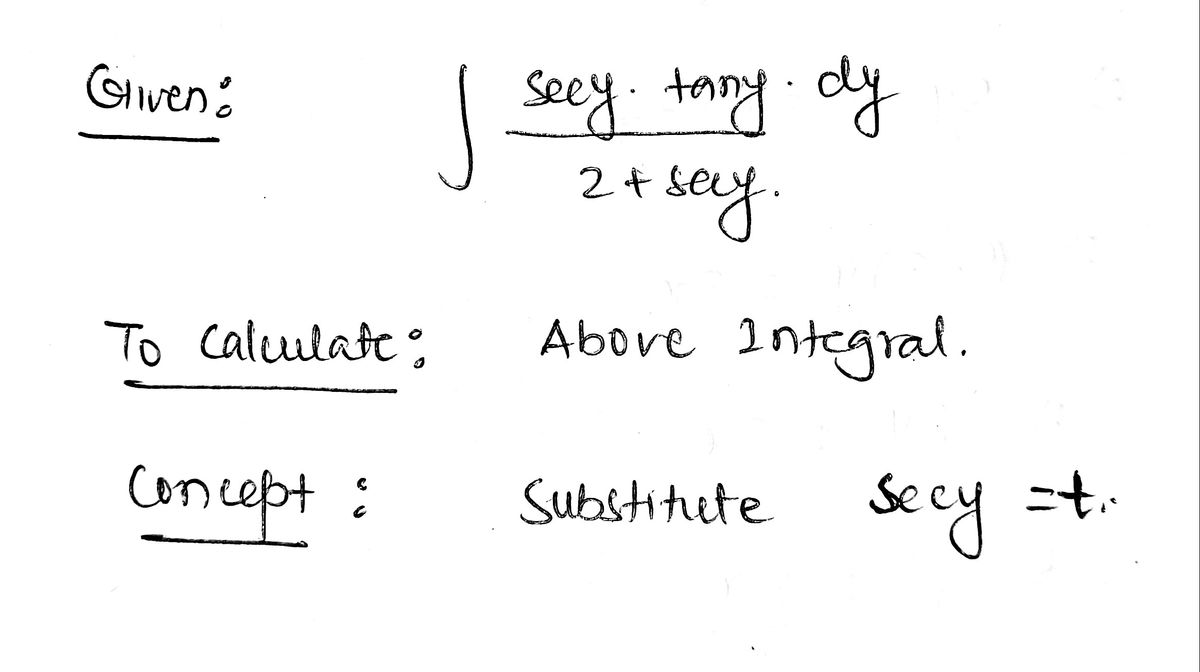 Given: ∫ secy. tany. dy
2 + secy.
To Calculate: Above Integral.
Concept: Substitute secy = t.